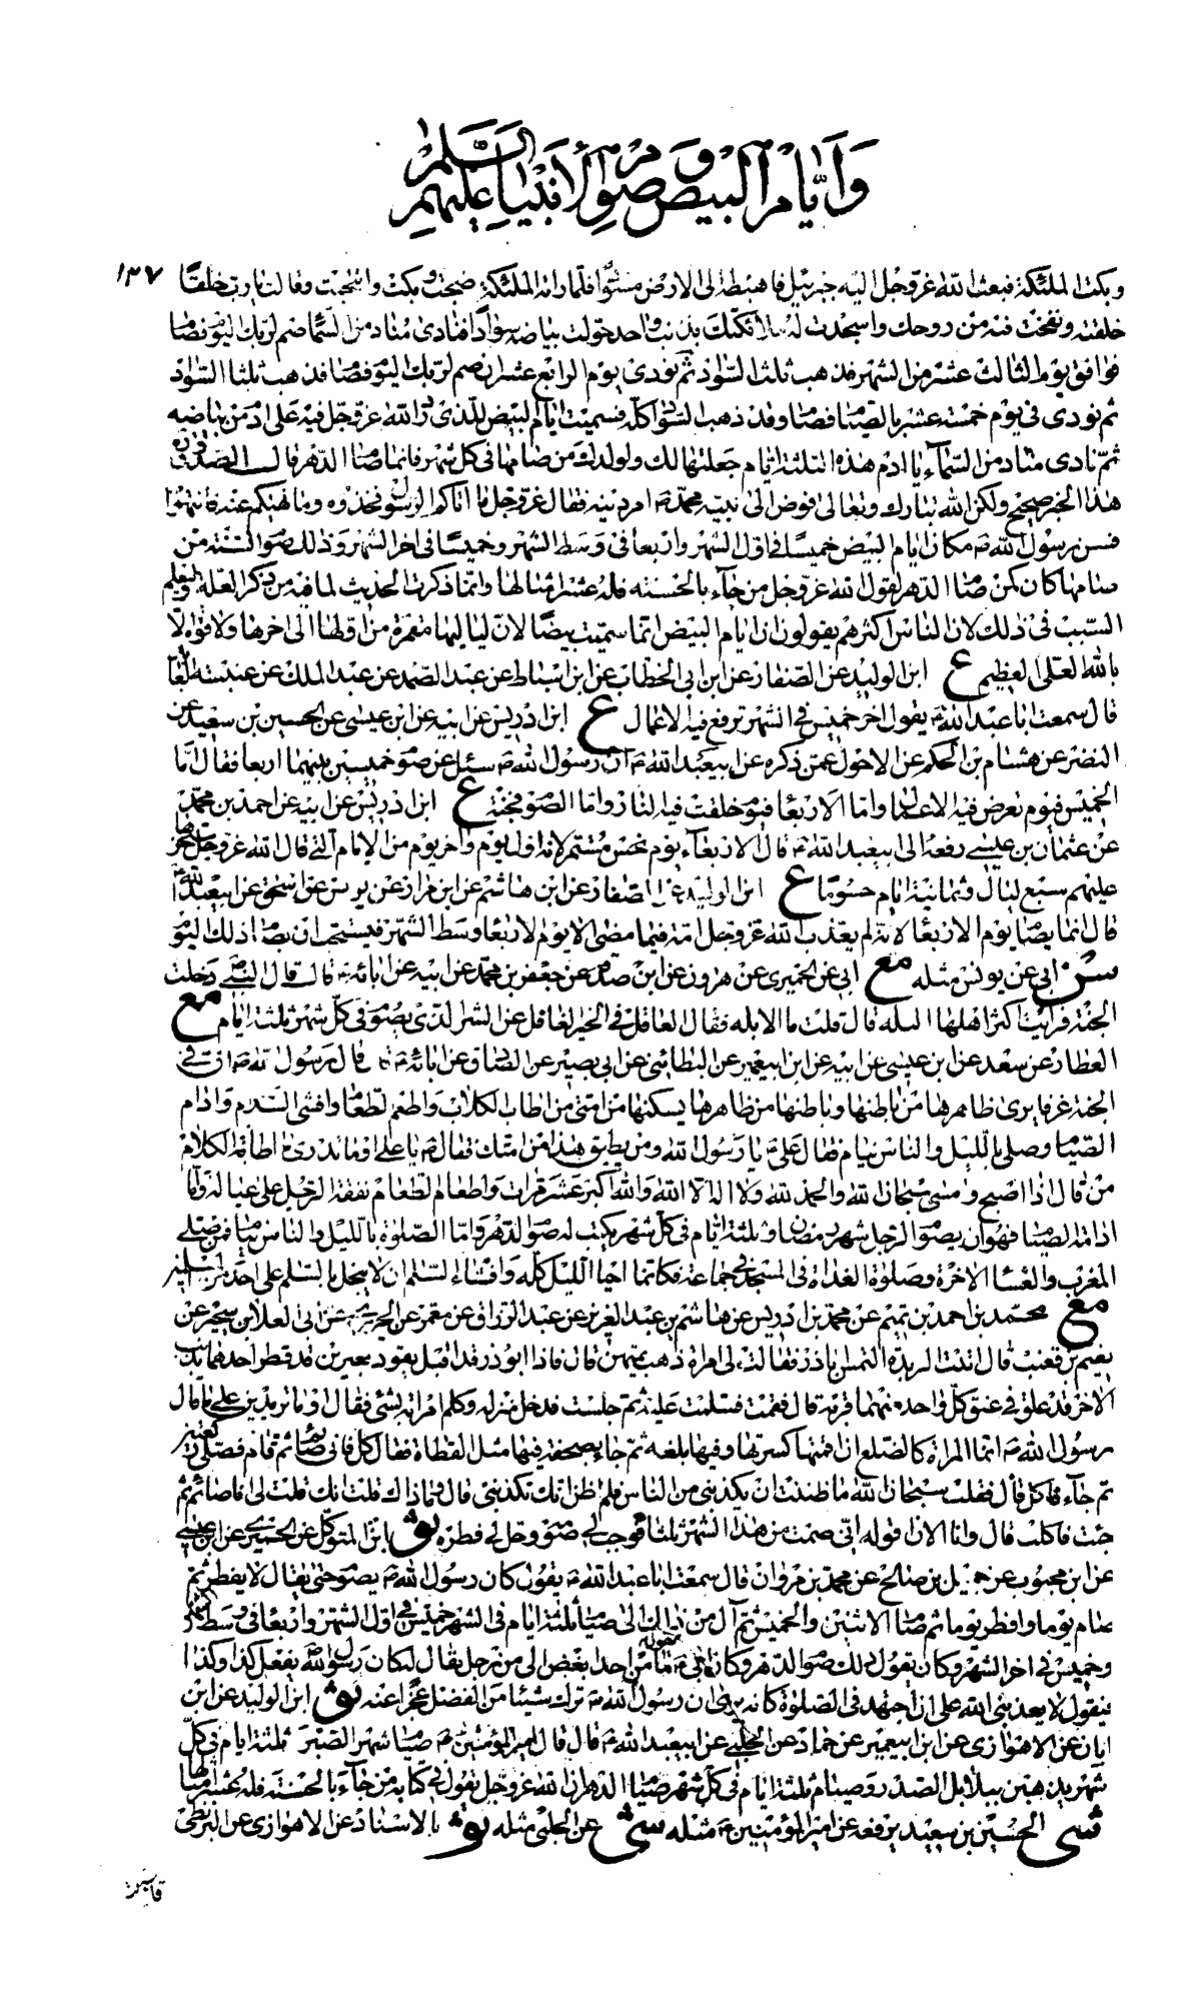 وأيام البيض وصوم الأنبياء عليهم السلم
١٣٧
وبكت الملئكة فبعث الله عز وجل اليه جبرئيل فاهبطه الى الارض مسودا فلما راته الملئكة ضجت وبكت وانتحبت وقالت يا رب خلقا
خلقته ونفخت فيه من روحك واسجدت له ملائكتك بذنب واحد حولت بياضه سوادا فنادى مناد من السماء صم لربك اليوم فصام
فوافق يوم الثالث عشر من الشهر فذهب ثلث السواد ثم نودى يوم الرابع عشر ان صم لربك اليوم فصام فذهب ثلثا السواد
ثم نودى في يوم خمسة عشر بالصيام فصام وقد ذهب السواد كله فسميت ايام البيض للذى رد الله عز وجل فيه على ادم من بياضه
ثم نادى مناد من السماء يا ادم هذه الثلثة ايام جعلتها لك ولولدك من صامها في كل شهر فانما صام الدهر قال الصدوق ره
هذا الخبر صحيح ولكن الله تبارك وتعالى فوض الى نبيه محمد ص امر دينه فقال عز وجل ما اتاكم الرسول فخذوه وما نهيكم عنه فانتهوا
فسن رسول الله ص مكان ايام البيض خميسا في اول الشهر واربعا في وسط الشهر وخميسا في اخر الشهر وذلك صوم السنة من
صامها كان كمن صام الدهر لقول الله عز وجل من جاء بالحسنة فله عشر امثالها وانما ذكرت الحديث لما فيه من ذكر العلة وليعلم
السبب في ذلك لان الناس اكثرهم يقولون ان ايام البيض انما سميت بيضا لان لياليها مقمرة من اولها الى اخرها ولا قوة الا
بالله العلي العظيم ع ابن الوليد عن الصفار عن ابن ابي الخطاب عن ابن اسباط عن عبد الصمد عن عبد الملك عن عنبسة العابد
قال سمعت ابا عبد الله ع يقول اخر خميس في الشهر ترفع فيه الاعمال ع ابن ادريس عن ابيه عن ابن عيسى عن الحسين بن سعيد عن
النضر عن هشام بن الحكم عن الاحول عمن ذكره عن ابيعبد الله ع ان رسول الله ص سئل عن صوم خميسين بينهما اربعا فقال اما
الخميس فيوم تعرض فيه الاعمال واما الاربعا فيوم خلقت فيه النار واما الصوم فجنة ع ابن ادريس عن ابيه عن احمد بن محمد
عن عثمان بن عيسى رفعه الى ابيعبد الله ع قال الاربعاء يوم نحس مستمر لانه اول يوم واخر يوم من الايام التي قال الله عز وجل سخرها
عليهم سبع ليال وثمانية ايام حسوما ع ابن الوليد عن الصفار عن ابن هاشم عن ابن مرار عن يونس عن اسحق عن ابيعبد الله ع
قال انما يصام يوم الاربعا لانه لم يعذب الله عز وجل امة فيما مضى الا يوم الاربعا وسط الشهر فيستحب ان يصام ذلك اليوم
سن ابي عن يونس مثله مع ابي عن الحميرى عن هرون عن ابن صدقة عن جعفر بن محمد عن ابيه عن ابائه ع قال قال النبي ص دخلت
الجنة فرايت اكثر اهلها البله قال قلت ما الابله فقال العاقل في الخير الغافل عن الشر الذى يصوم في كل شهر ثلثة ايام مع
العطار عن سعد عن ابن عيسى عن ابيه عن ابن ابيعمير عن البطائني عن ابي بصير عن الصادق عن ابائه ع قال قال رسول الله ص ان في
الجنة غرفا يرى ظاهرها من باطنها وباطنها من ظاهرها يسكنها من امتي من اطاب الكلام واطعم الطعام وافشى السلام وادام
الصيام وصلى بالليل والناس نيام فقال علي ع يا رسول الله ومن يطيق هذا من امتك فقال ص يا علي اوما تدرى ما اطابة الكلام
من قال اذا اصبح وامسى سبحان الله والحمد لله ولا اله الا الله والله اكبر عشر مرات واطعام الطعام نفقة الرجل على عياله واما
ادامة الصيام فهو ان يصوم الرجل شهر رمضان وثلثة ايام في كل شهر يكتب له صوم الدهر واما الصلوة بالليل والناس نيام فمن صلى
المغرب والعشا الاخرة وصلوة الغداة في المسجد في جماعة فكانما احيا الليل كله وافشاء السلم ان لا يبخل بالسلم على احد من المسلمين
مع محمد بن احمد بن تميم عن محمد بن ادريس عن هاشم بن عبد العزيز عن عبد الرزاق عن معمر عن الجريرى عن ابي العلا بن سخير عن
نعيم بن قعنب قال اتيت الربذة التمس اباذر فقالت لي امراة ذهب يمتهن قال فاذا ابوذر قد اقبل يقود بعيرين قد قطر احدهما بذنب
الاخر قد علق في عنق كل واحد منهما قربة قال فقمت فسلمت عليه ثم جلست فدخل منزله وكلم امراته بشئ فقال اوما تزيدين على ما قال
رسول الله ص انما المراة كالضلع ان اقمتها كسرتها وفيها بلغة ثم جاء بصحفة فيها مثل القطاة فقال كل فاني صائم ثم قام فصلى ركعتين
ثم جاء فاكل قال فقلت سبحان الله ما ظننت ان يكذبني من الناس فلم اظن انك تكذبني قال وما ذاك قلت انك قلت لي انا صائم ثم
جئت فاكلت قال وانا الان اقوله اني صمت من هذا الشهر ثلثا فوجب لي صومه وحل لي فطره ثو ابن المتوكل عن الحميرى عن ابن عيسى
عن ابن محبوب عن جميل بن صالح عن محمد بن مروان قال سمعت ابا عبد الله ع يقول كان رسول الله ص يصوم حتى يقال لا يفطر ثم
صام يوما وافطر يوما ثم صام الاثنين والخميس ثم آل من ذلك الى صيام ثلثة ايام في الشهر خميس في اول الشهر واربعا في وسط الشهر
وخميس في اخر الشهر وكان يقول ذلك صوم الدهر وكان ابي ع يقول ما من احد ابغض الي من رجل يقال له كان رسول الله ص يفعل كذا وكذا
فيقول لا يعذبني الله على ان اجتهد في الصلوة كانه يرى ان رسول الله ص ترك شيئا من الفضل عجزا عنه ثو ابن الوليد عن ابن
ابان عن الاهوازى عن ابن ابيعمير عن حماد عن الحلبي عن ابيعبد الله ع قال قال امير المؤمنين ع صيام شهر الصبر وثلثة ايام في كل
شهر يذهبن ببلابل الصدر وصيام ثلثة ايام في كل شهر صيام الدهر ان الله عز وجل يقول في كتابه من جاء بالحسنة فله عشر امثالها
شى الحسين بن سعيد يرفعه عن امير المؤمنين ع مثله شى عن الحلبي مثله ثو بالاسناد عن الاهوازى عن البزنطى